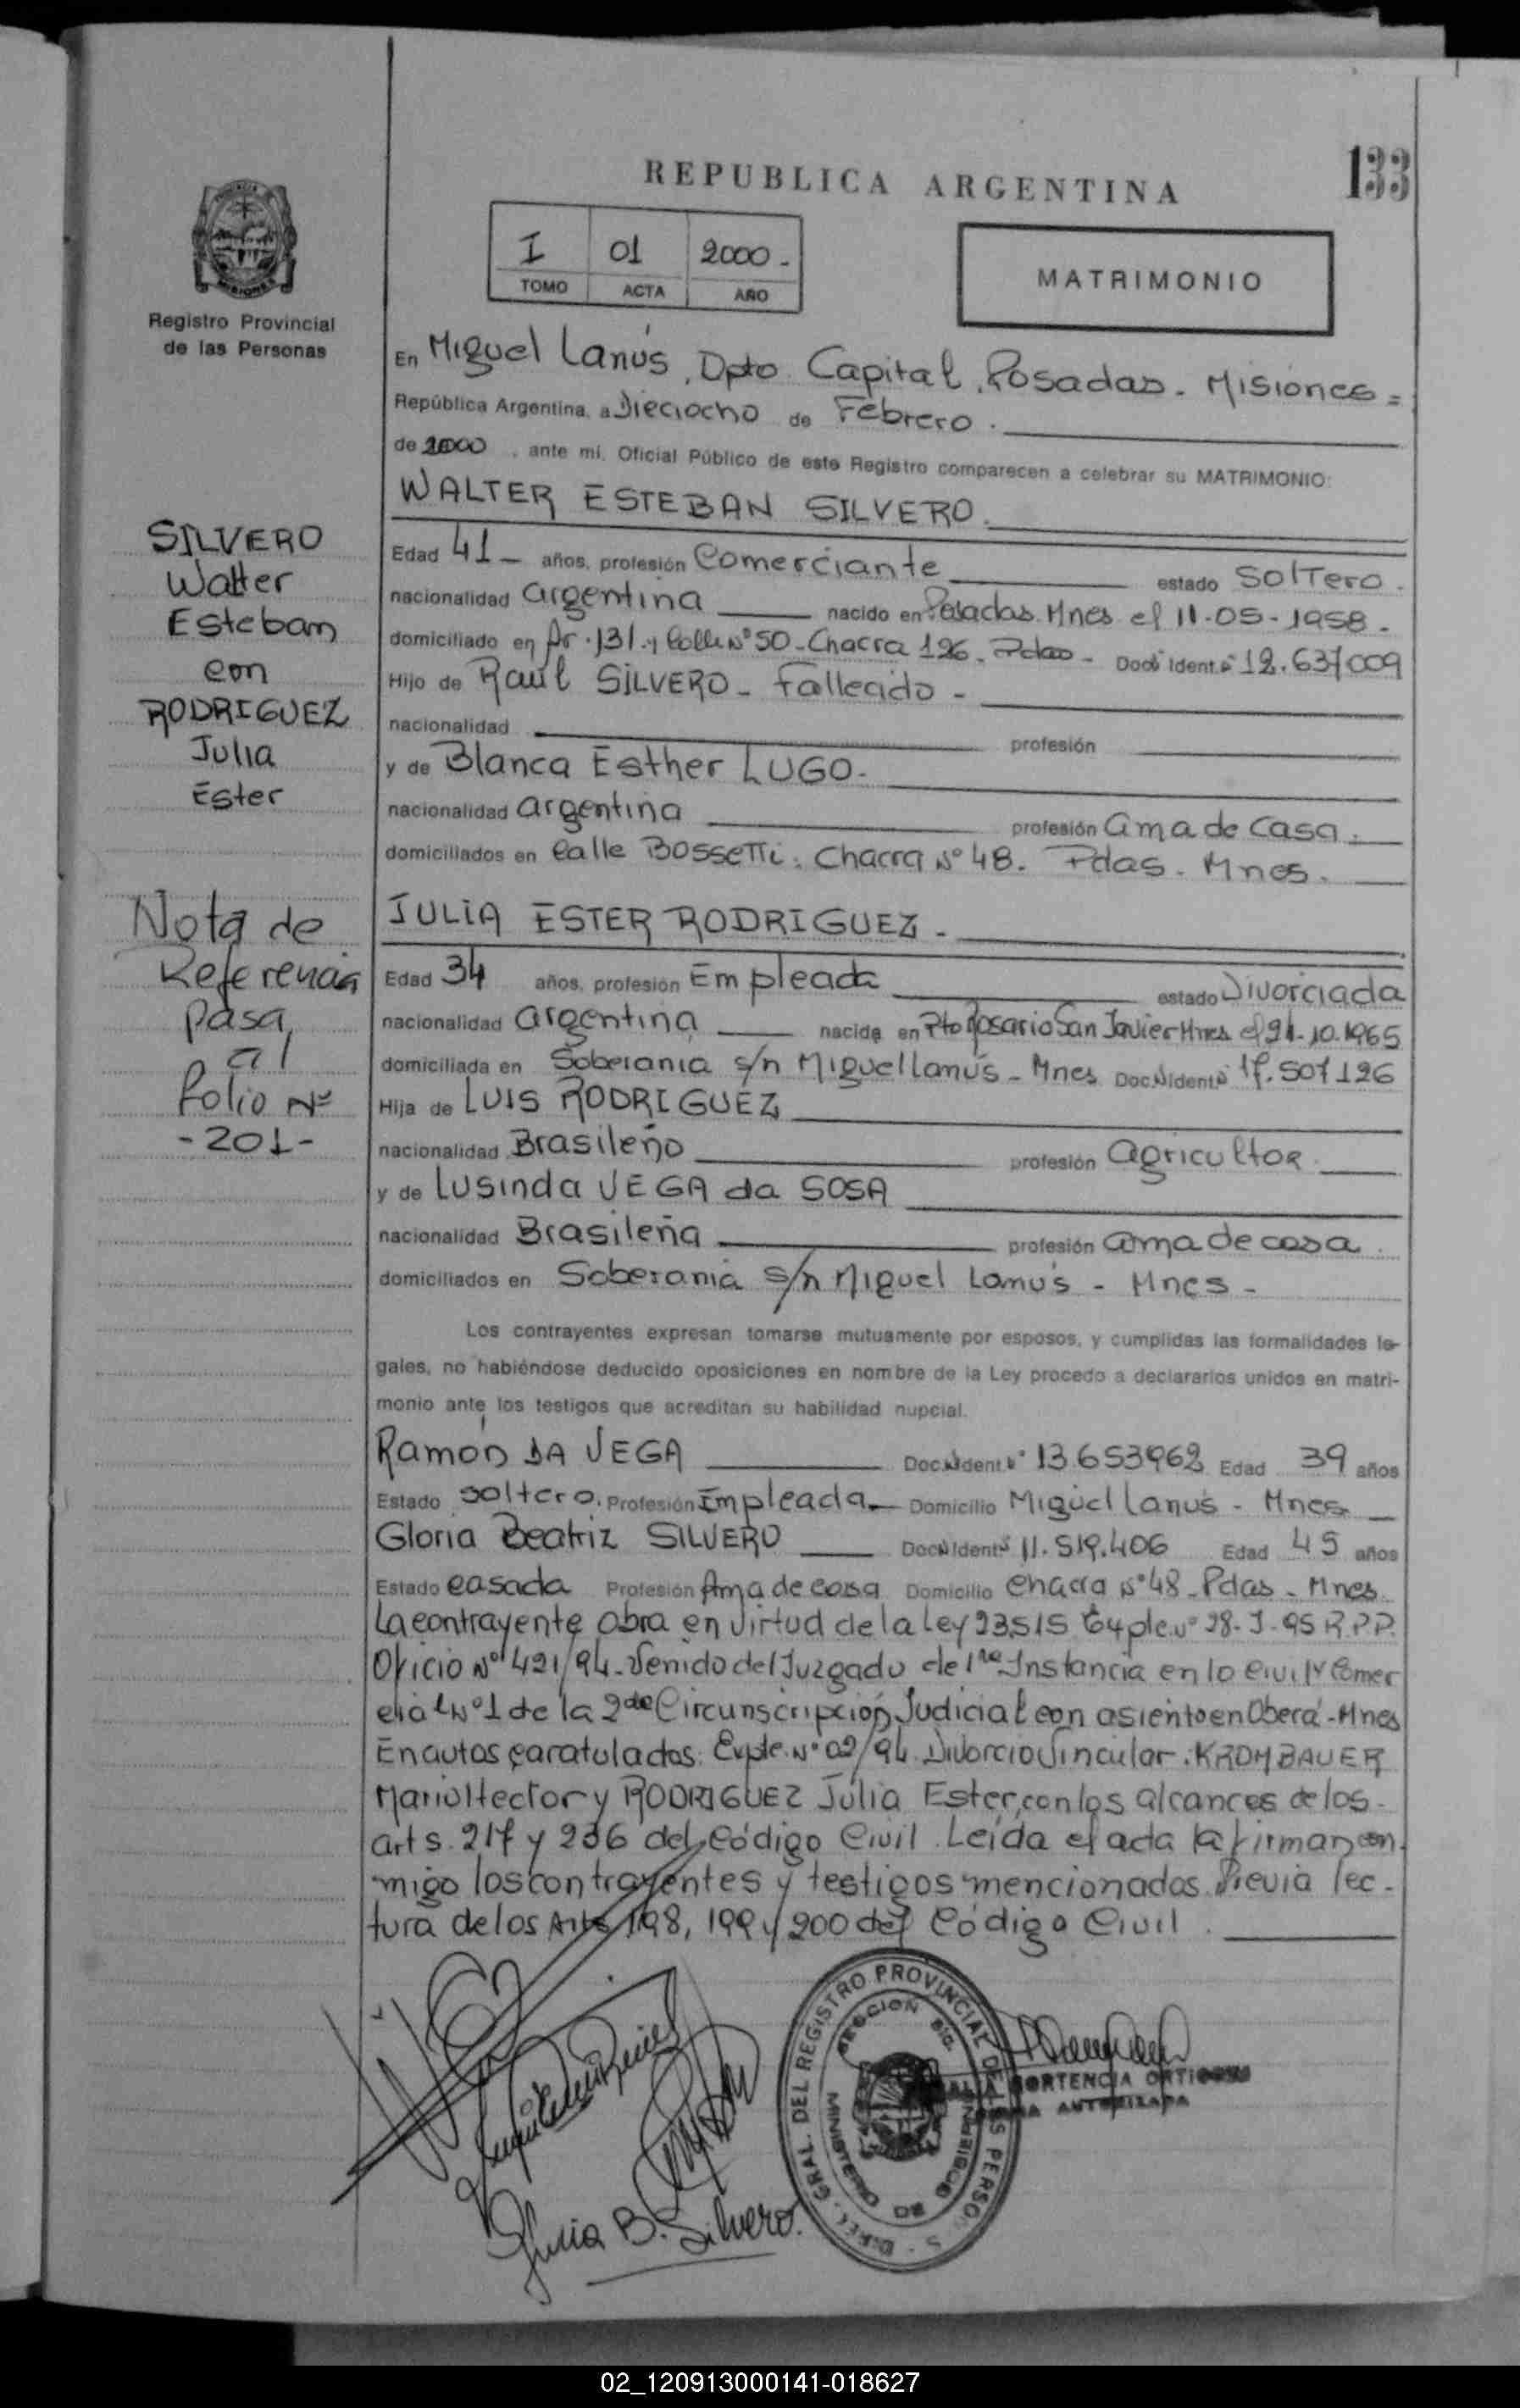 REPUBLICA ARGENTINA
133
I 01 2000 -
TOMO ACTA AÑO
MATRIMONIO
MISIONES
Registro Provincial
de las Personas
SILVERO
Walter
Esteban
con
RODRIGUEZ
Julia
Ester
Nota de
Referencia
pasa
al
folio Nº
-201-
En Miguel Lanús, Dpto. Capital, Posadas - Misiones =
República Argentina, a Dieciocho de Febrero.
de 2000, ante mí, Oficial Público de este Registro comparecen a celebrar su MATRIMONIO:
WALTER ESTEBAN SILVERO.
Edad 41 - años, profesión Comerciante estado Soltero.
nacionalidad argentina nacido en Posadas Mnes el 11-05-1958.
domiciliado en Av. 131 y Calle Nº 50 - Chacra 126. Pdas - Doc. Ident. Nº 12.637009
Hijo de Raúl SILVERO - Fallecido -
nacionalidad profesión
y de Blanca Esther LUGO.
nacionalidad argentina profesión ama de casa.
domiciliados en Calle Bossetti. Chacra Nº 48. Pdas. Mnes.
JULIA ESTER RODRIGUEZ -
Edad 34 años, profesión Empleada estado Divorciada
nacionalidad argentina nacida en Pto Rosario San Javier Mnes el 21.10.1965
domiciliada en Soberania s/n Miguel Lanús - Mnes Doc. Ident. Nº 17.507126
Hija de LUIS RODRIGUEZ
nacionalidad Brasileño profesión agricultor.
y de Lusinda VEGA da SOSA
nacionalidad Brasileña profesión ama de casa.
domiciliados en Soberania s/n Miguel Lanús - Mnes -
Los contrayentes expresan tomarse mutuamente por esposos, y cumplidas las formalidades le-
gales, no habiéndose deducido oposiciones en nombre de la Ley procedo a declararlos unidos en matri-
monio ante los testigos que acreditan su habilidad nupcial.
Ramón DA VEGA Doc. Ident. Nº 13.653962 Edad 39 años
Estado soltero. Profesión Empleada Domicilio Miguel Lanús - Mnes
Gloria Beatriz SILVERO Doc. Ident. Nº 11.519.406 Edad 45 años
Estado casada Profesión Ama de casa Domicilio Chacra Nº 48 - Pdas - Mnes.
La contrayente obra en virtud de la Ley 23.515 Nº 28-J-95 R.P.P.
Oficio Nº 421/94 - Venido del Juzgado de 1ra Instancia en lo Civil y Comer
cial Nº 1 de la 2da Circunscripción Judicial con asiento en Oberá - Mnes
En autos caratulados: Expte. Nº 02/94 Divorcio Vincular. KROMBAUER
Mario Hector y RODRIGUEZ Julia Ester, con los alcances de los
arts. 217 y 236 del Código Civil. Leída el acta la firman con
migo los contrayentes y testigos mencionados. Previa lec-
tura de los Arts 198, 199 y 200 del Código Civil.
Gloria B. Silvero.
DIREC. GRAL. DEL REGISTRO PROVINCIAL DE LAS PERSONAS
HORTENCIA
FIRMA AUTORIZADA
02_120913000141-018627